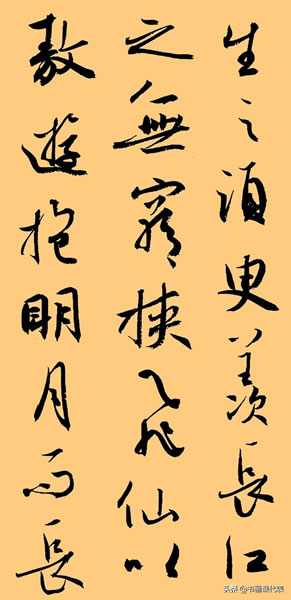 生之須臾羨長江
之無窮挾飛仙以
敖遊抱明月而長
头条 @书画课代表